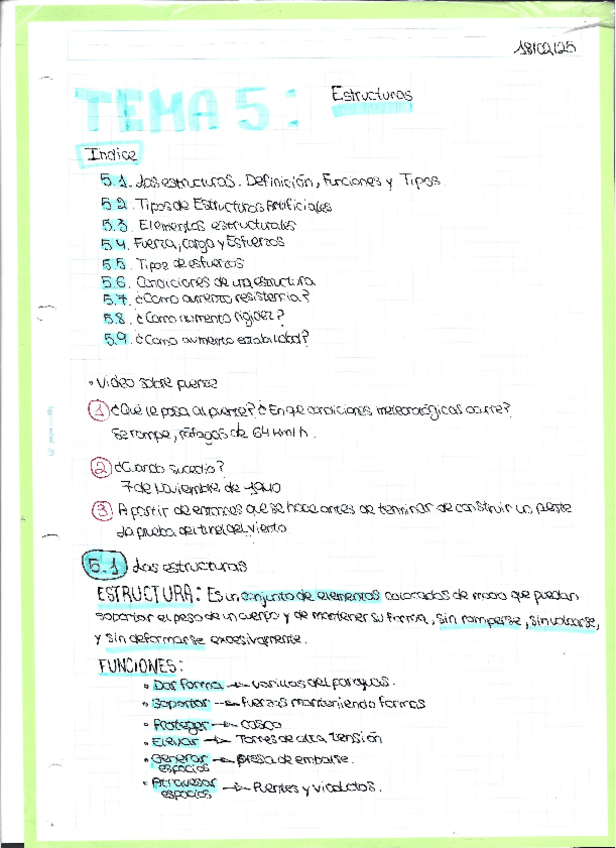 18/02/25
TEMA 5: Estructuras
Indice
5.1. Las estructuras. Definición, Funciones y Tipos.
5.2. Tipos de Estructuras Artificiales
5.3. Elementos estructurales
5.4. Fuerza, carga y Esfuerzos
5.5. Tipos de esfuerzos
5.6. Condiciones de una estructura
5.7. ¿Como aumento resistencia?
5.8. ¿Como aumento rigidez?
5.9. ¿Como aumento estabilidad?
• Video sobre puente
1 ¿Qué le pasa al puente? ¿En que condiciones meteorológicas ocurre?
Se rompe, ráfagas de 64 km/h.
2 ¿Cuando sucedio?
7 de Noviembre de 1940
3 A partir de entonces que se hace antes de terminar de construir un puente
La prueba del tunel del viento
5.1 Las estructuras
ESTRUCTURA: Es un conjunto de elementos colocados de modo que puedan
soportar el peso de un cuerpo y de mantener su forma, sin romperse, sin volcarse,
y sin deformarse excesivamente.
FUNCIONES:
• Dar forma → varillas del paraguas.
• Soportar → fuerzas manteniendo formas
• Proteger → casco
• Elevar → Torres de alta tensión
• Generar espacios → presa de embalse.
• Atravesar espacios → Puentes y viaductos.